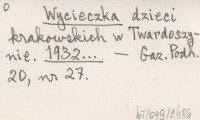 0
Wycieczka dzieci
krakowskich w Twardoszy-
nie. 1932... — Gaz. Podh.
20, nr 27.